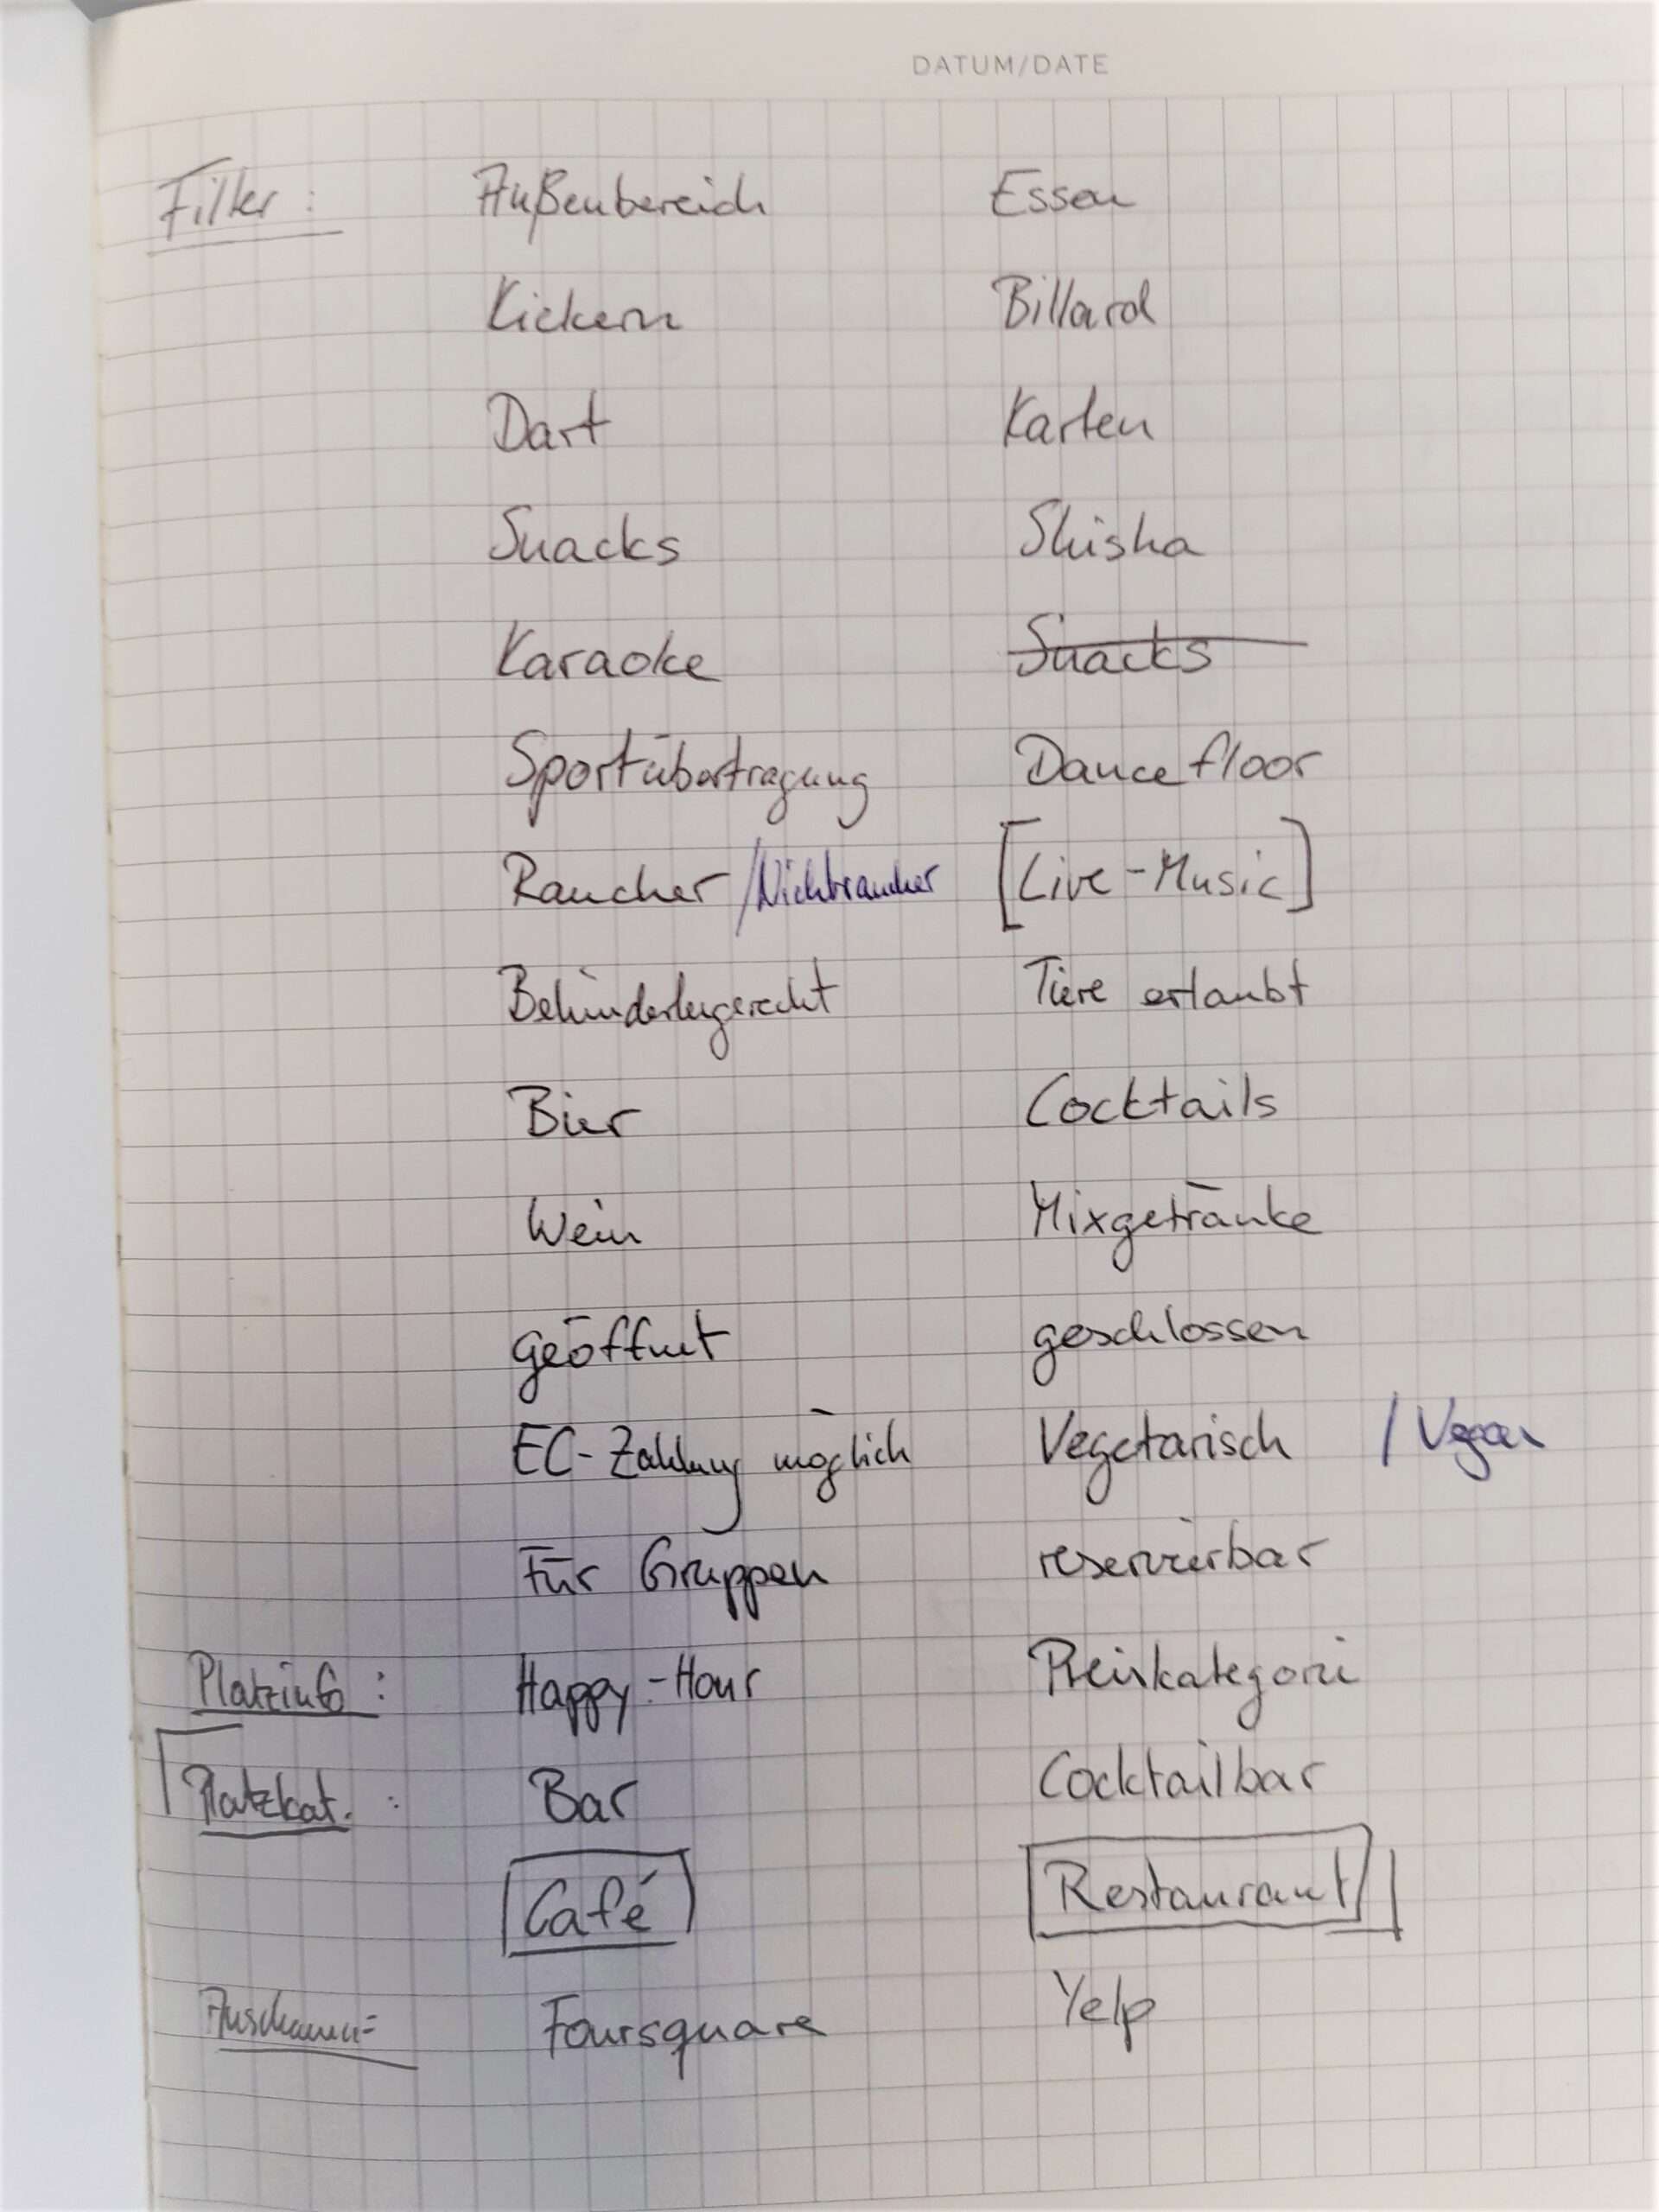 DATUM/DATE
Filter: Außenbereich Essen
Kickern Billard
Dart Karten
Snacks Shisha
Karaoke Snacks
Sportübertragung Dancefloor
Raucher /Nichtraucher [Live-Music]
Behindertengerecht Tiere erlaubt
Bier Cocktails
Wein Mixgetränke
geöffnet geschlossen
EC-Zahlung möglich Vegetarisch / Vegan
Für Gruppen reservierbar
Platzinfo: Happy-Hour Preiskategorie
Platzkat.: Bar Cocktailbar
Café Restaurant
Anschauen: Foursquare Yelp